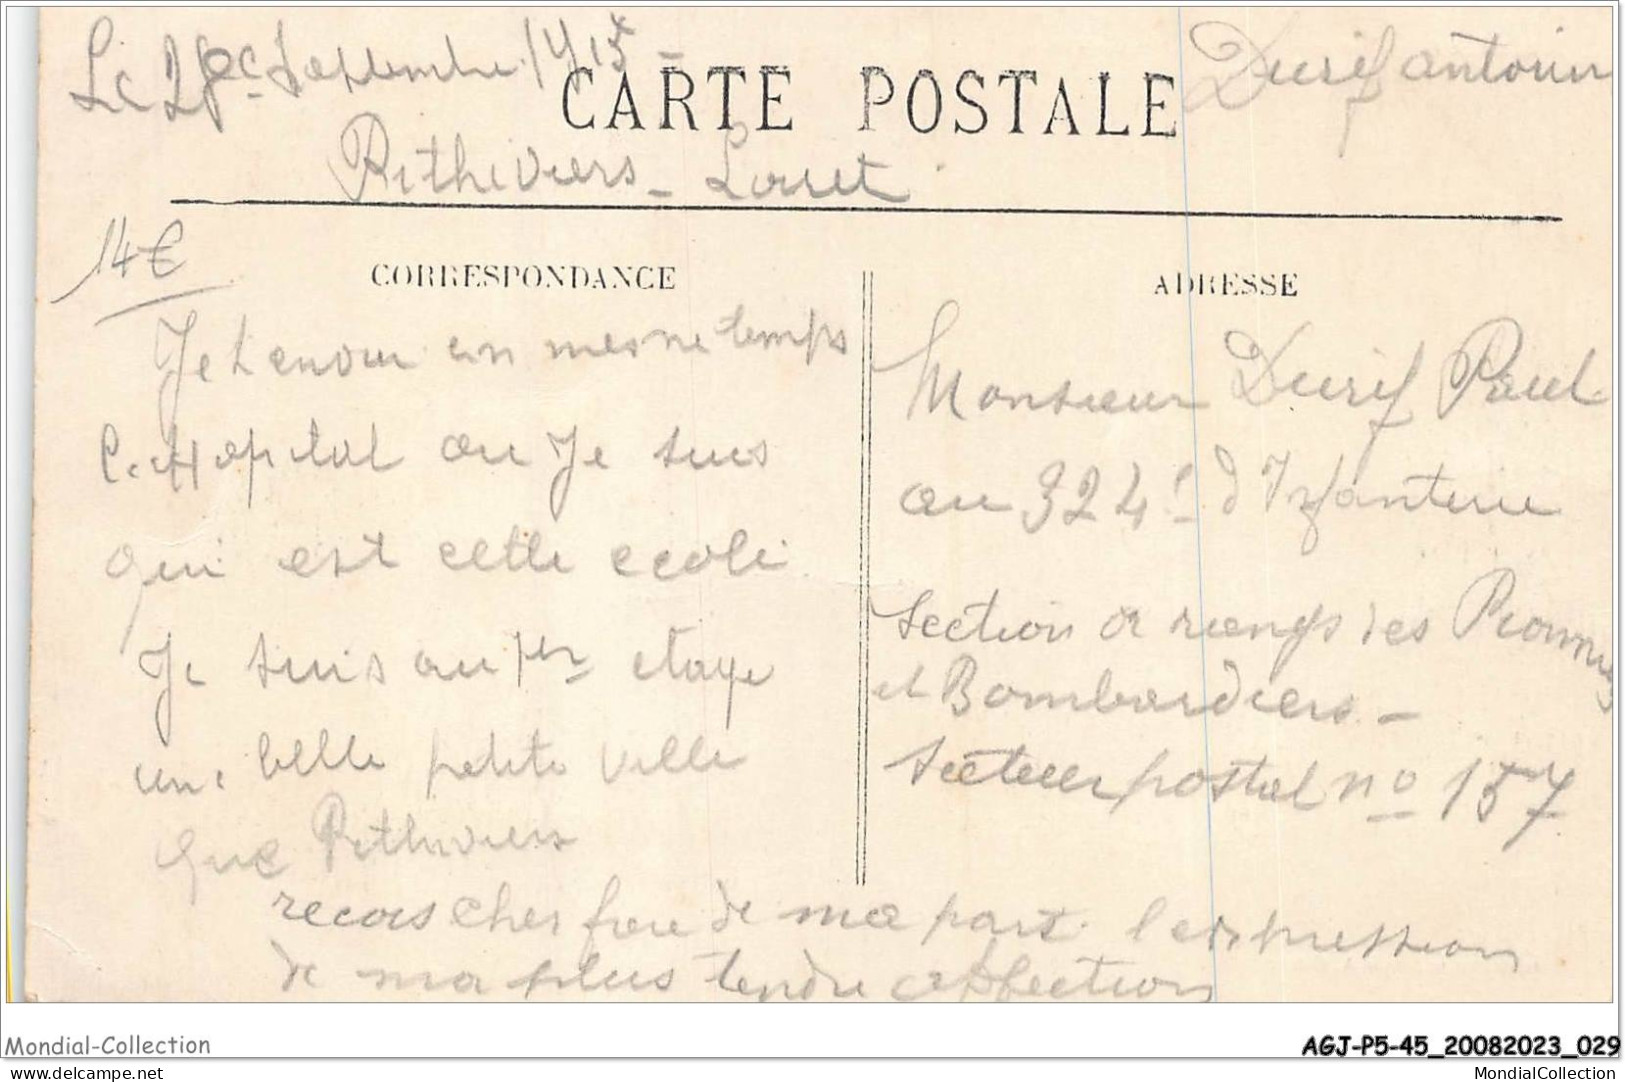 Le 28 Septembre 1915 -
Durif antonin
CARTE POSTALE
Pithiviers - Loiret
14€
CORRESPONDANCE
ADRESSE
Je t envoie en mesne temps
l. Hopital ou Je suis
qui est cette ecole
Je suis au 1er etage
une belle petite ville
que Pithiviers
Monsieur Durif Paul
au 324e d'Infanterie
Section or rangs des Pionniers
et Bombardiers -
Secteur postal no 157
recois cher frere de ma part l expression
de ma plus tendre affection
Mondial-Collection
AGJ-P5-45_20082023_029
delcampe.net
MondialCollection